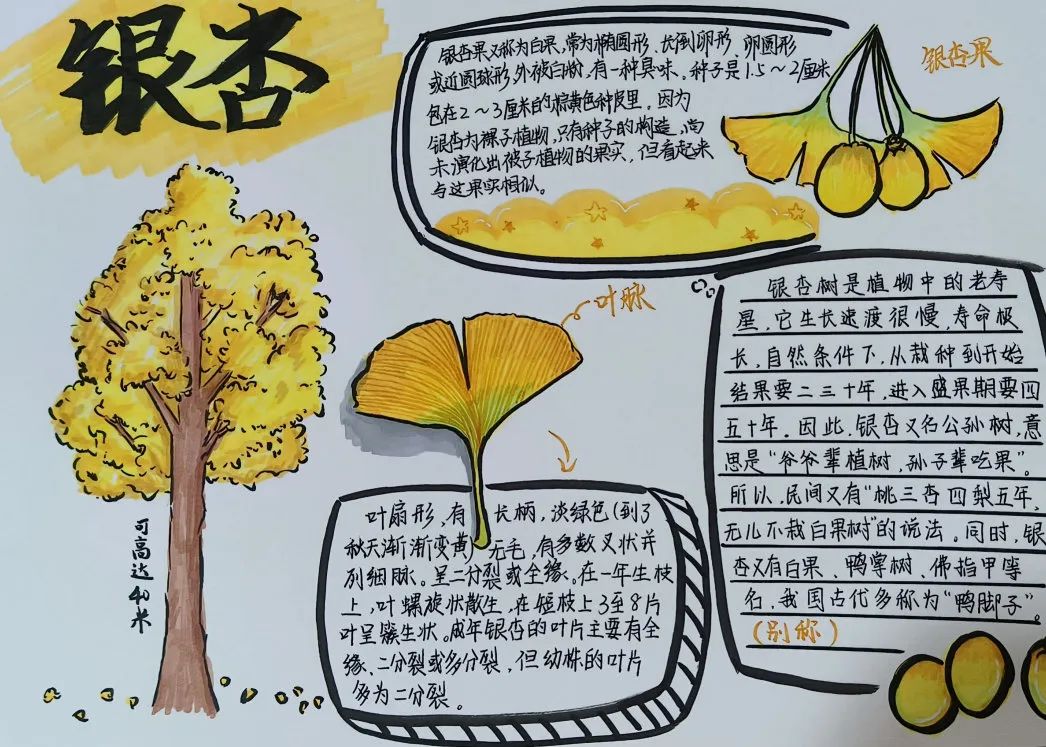 银杏
银杏果又称为白果,常为椭圆形、长倒卵形、卵圆形
或近圆球形,外被白粉,有一种臭味。种子是1.5～2厘米
包在2～3厘米的棕黄色种皮里。因为
银杏为裸子植物,只有种子的构造,尚
未演化出被子植物的果实,但看起来
与这果实相似。
银杏果
可高达40米
叶脉
叶扇形,有长柄,淡绿色(到了
秋天渐渐变黄)无毛,有多数叉状并
列细脉。呈二分裂或全缘。在一年生枝
上,叶螺旋状散生,在短枝上3至8片
叶呈簇生状。成年银杏的叶片主要有全
缘、二分裂或多分裂,但幼株的叶片
多为二分裂。
银杏树是植物中的老寿
星,它生长速渡很慢,寿命极
长,自然条件下,从栽种到开始
结果要二三十年,进入盛果期要四
五十年。因此,银杏又名公孙树,意
思是“爷爷辈植树,孙子辈吃果”。
所以,民间又有“桃三杏四梨五年,
无儿不栽白果树”的说法。同时,银
杏又有白果、鸭掌树、佛指甲等
名,我国古代多称为“鸭脚子”。
(别称)